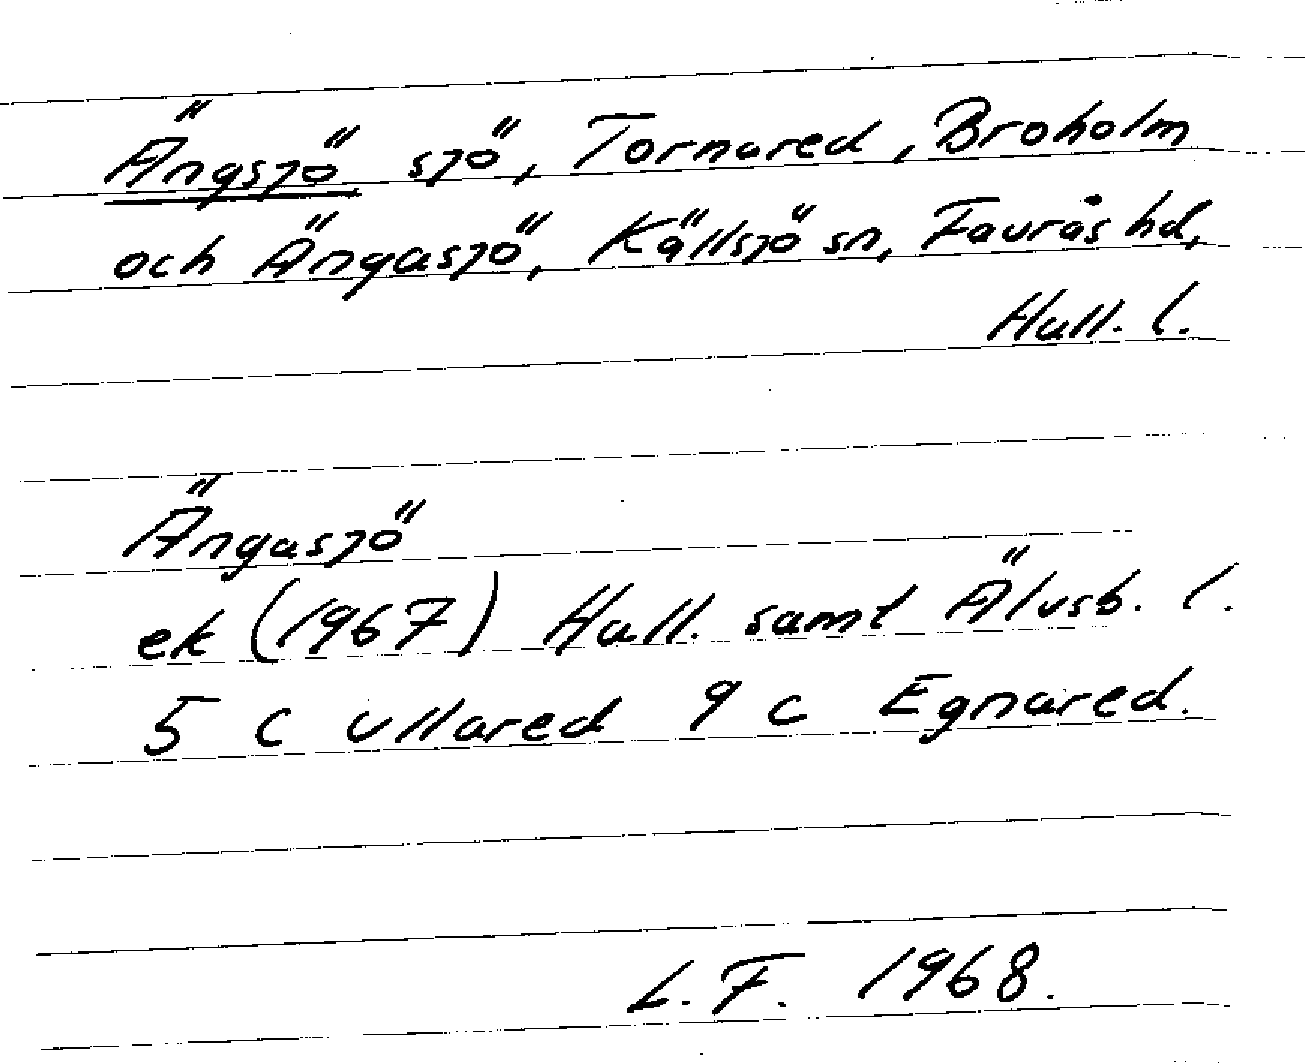 Ängsjö sjö, Tornared, Broholm
och Ängasjö, Källsjö sn, Faurås hd,
Hall. l.
Ängasjö
ek (1967) Hall. samt Älvsb. l.
5 C Ullared 9 c Egnared.
L. F. 1968.